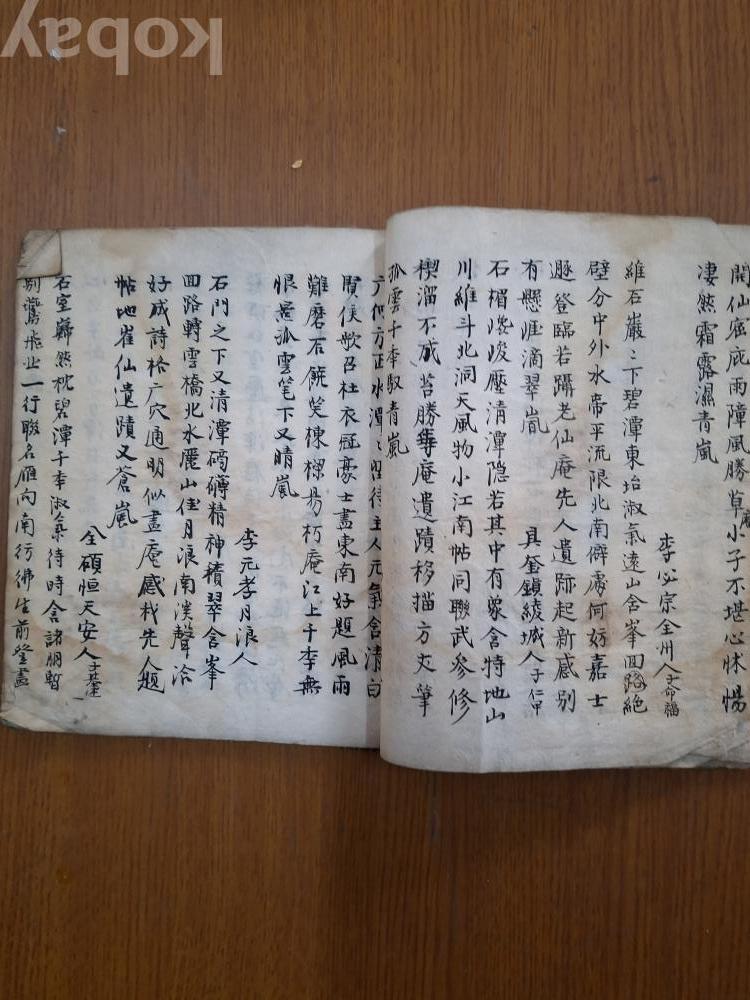 開仙庄庇雨障風勝草庵小子不堪心怵惕
凄然霜露濕青嵐
李必宗全州人子命福
維石巖々下碧潭東坮淑氣遠山含峯回路絶
壁分中外水帝平流限北南僻處何妨嘉士
遯登臨若躡老仙庵先人遺跡起新感別
有懸崖滴翠嵐
具奎鎭綾城人子仁甲
石楣浚壓清潭隐若其中有象含特地山
川維斗北洞天風物小江南帖同聯武參修
楔溜不成苔勝每庵遺蹟移描方丈筆
孤雲千李馭青嵐
方正水潭々留待主人元氣含清白
賢侯歌召杜衣冠豪士盡東南好題風雨
難磨石饒笑棟樑易朽庵江上千李無
恨意孤雲笔下又晴嵐
李元孝月浪人
石門之下又清潭磅礴精神積翠含峯
回路轉雲橋北水麗山佳月浪南溪聲洽
好成詩格广穴通明似畫庵感哉先人題
帖地崔仙遺蹟又蒼嵐
全碩恒天安人子
石室巋然枕碧潭千李淑氣待時含諸朋暫
別鷺飛一行聯名雁向南行彿生前登盡